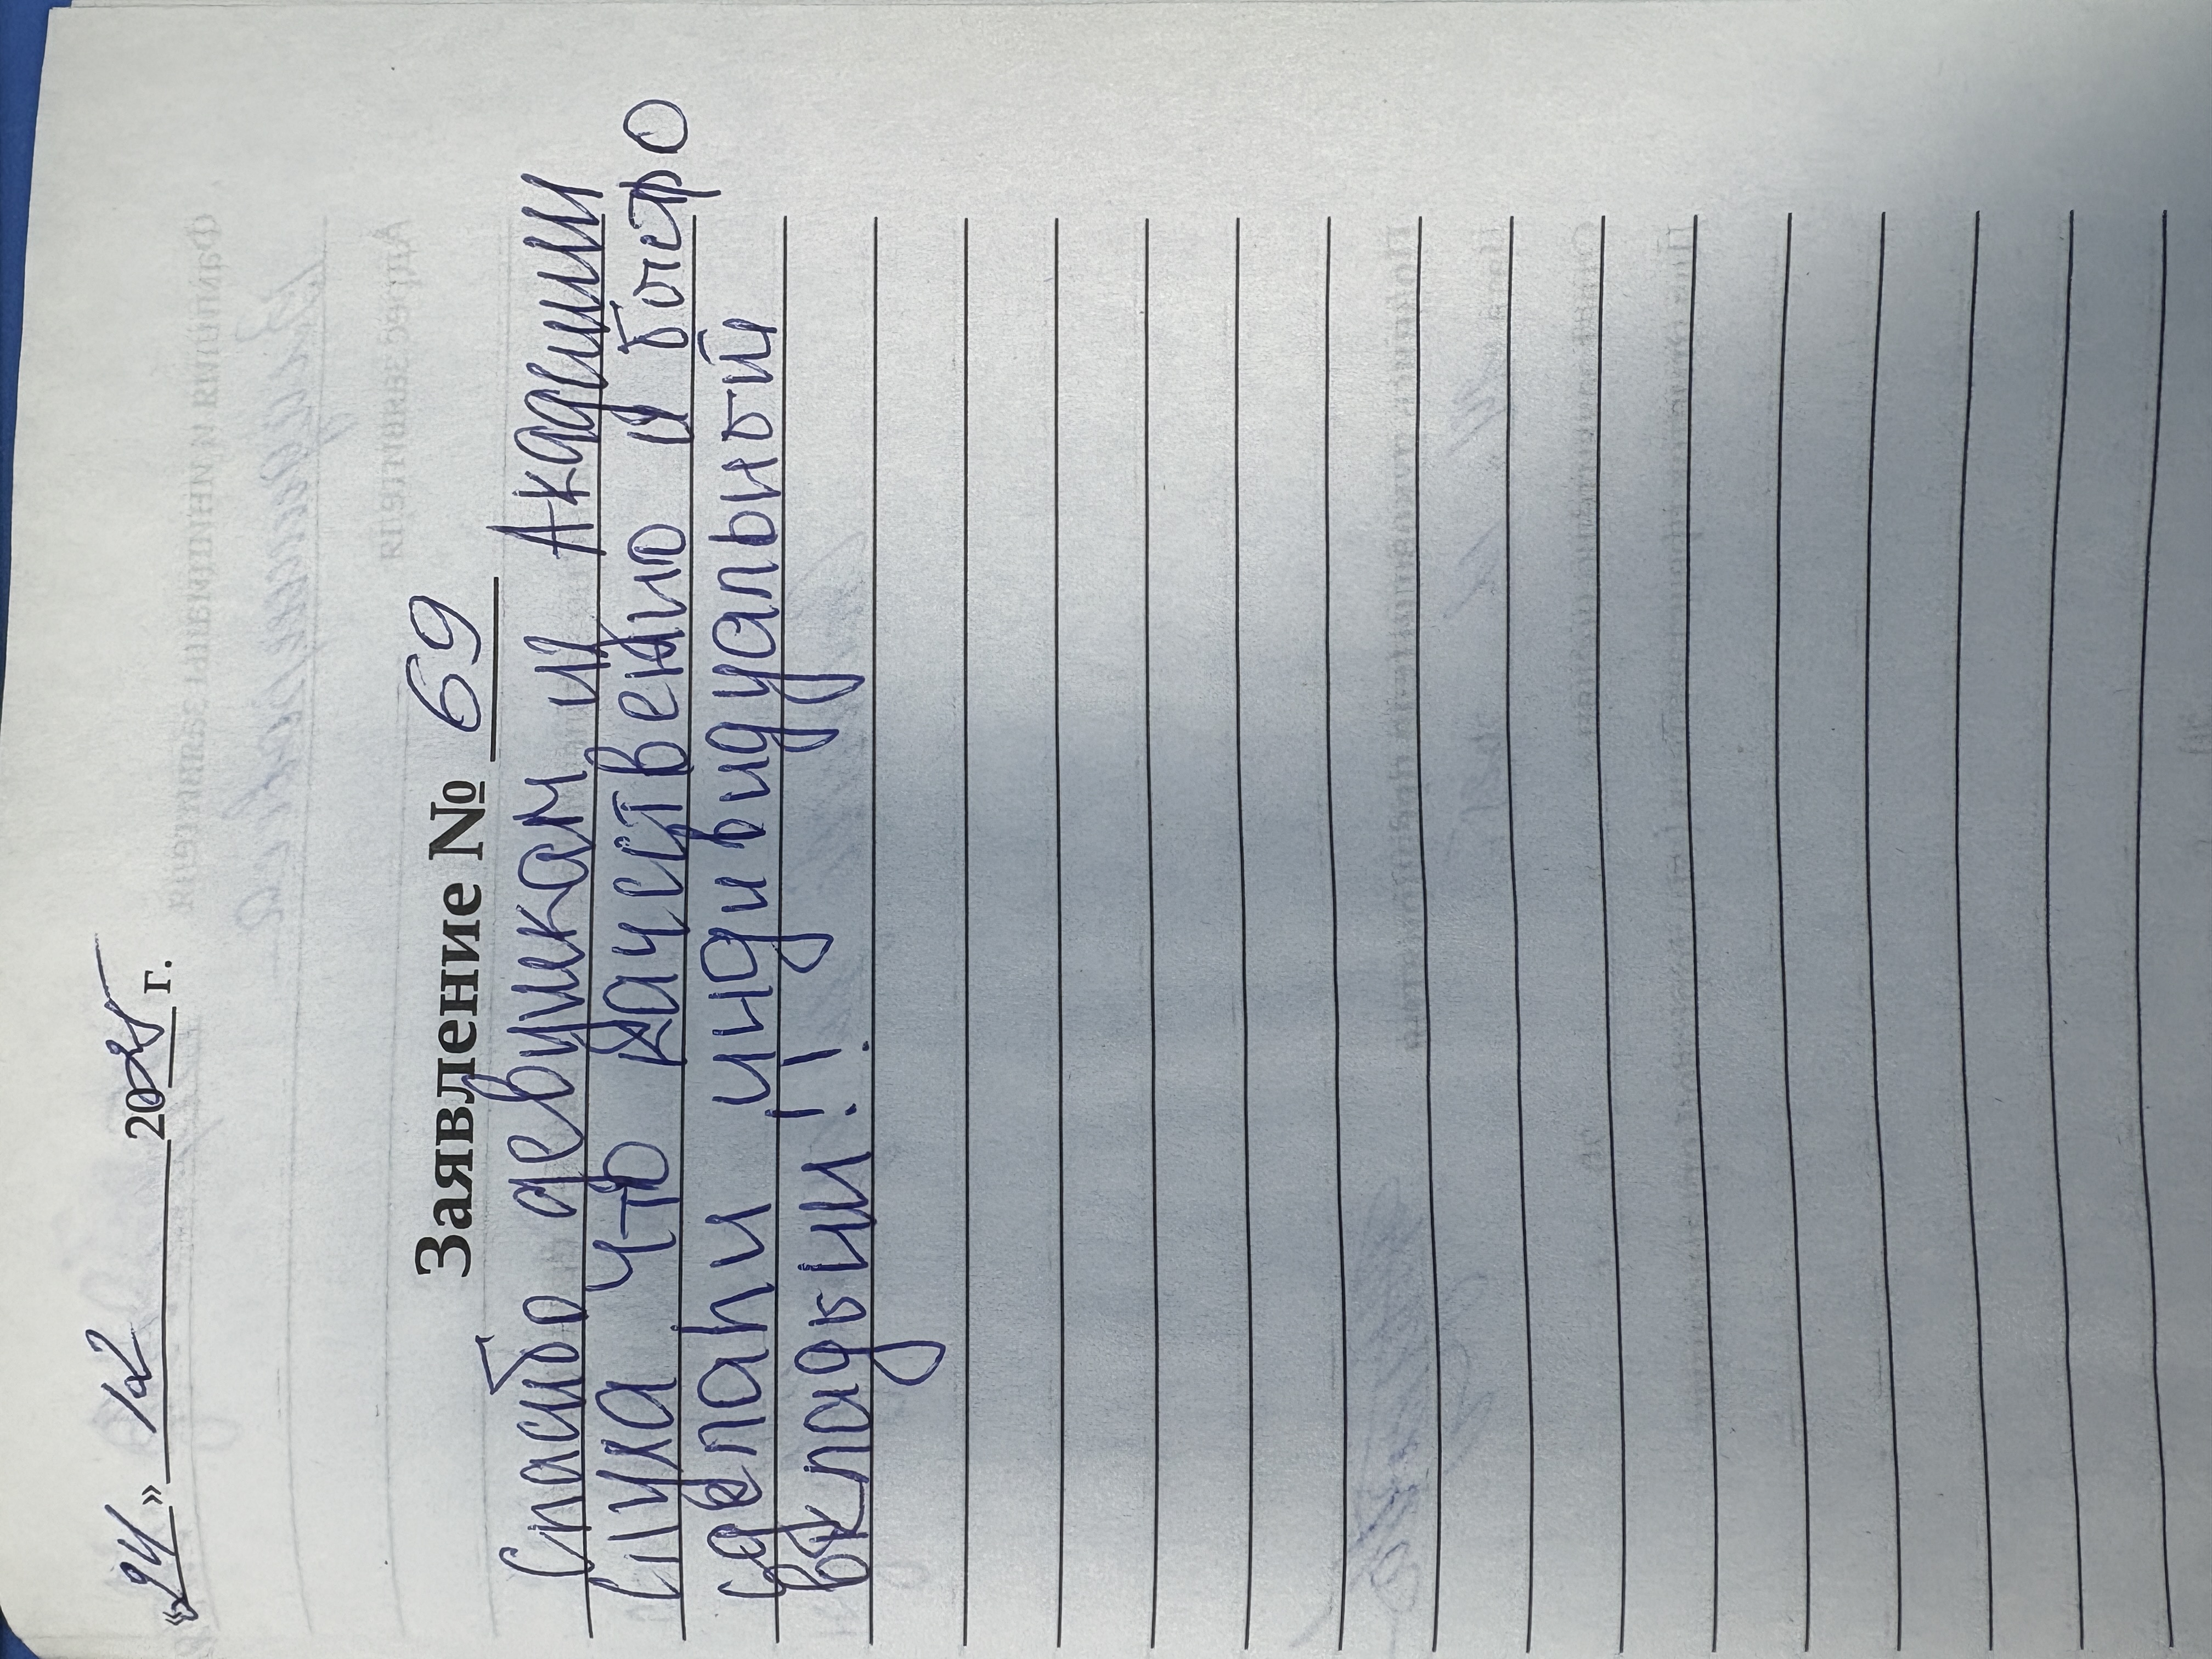 «24» 12 2025 г.
Заявление № 69
Спасибо девушкам и Академии
Слуха что качественно и быстро
сделали индивидуальный
вкладыш!!